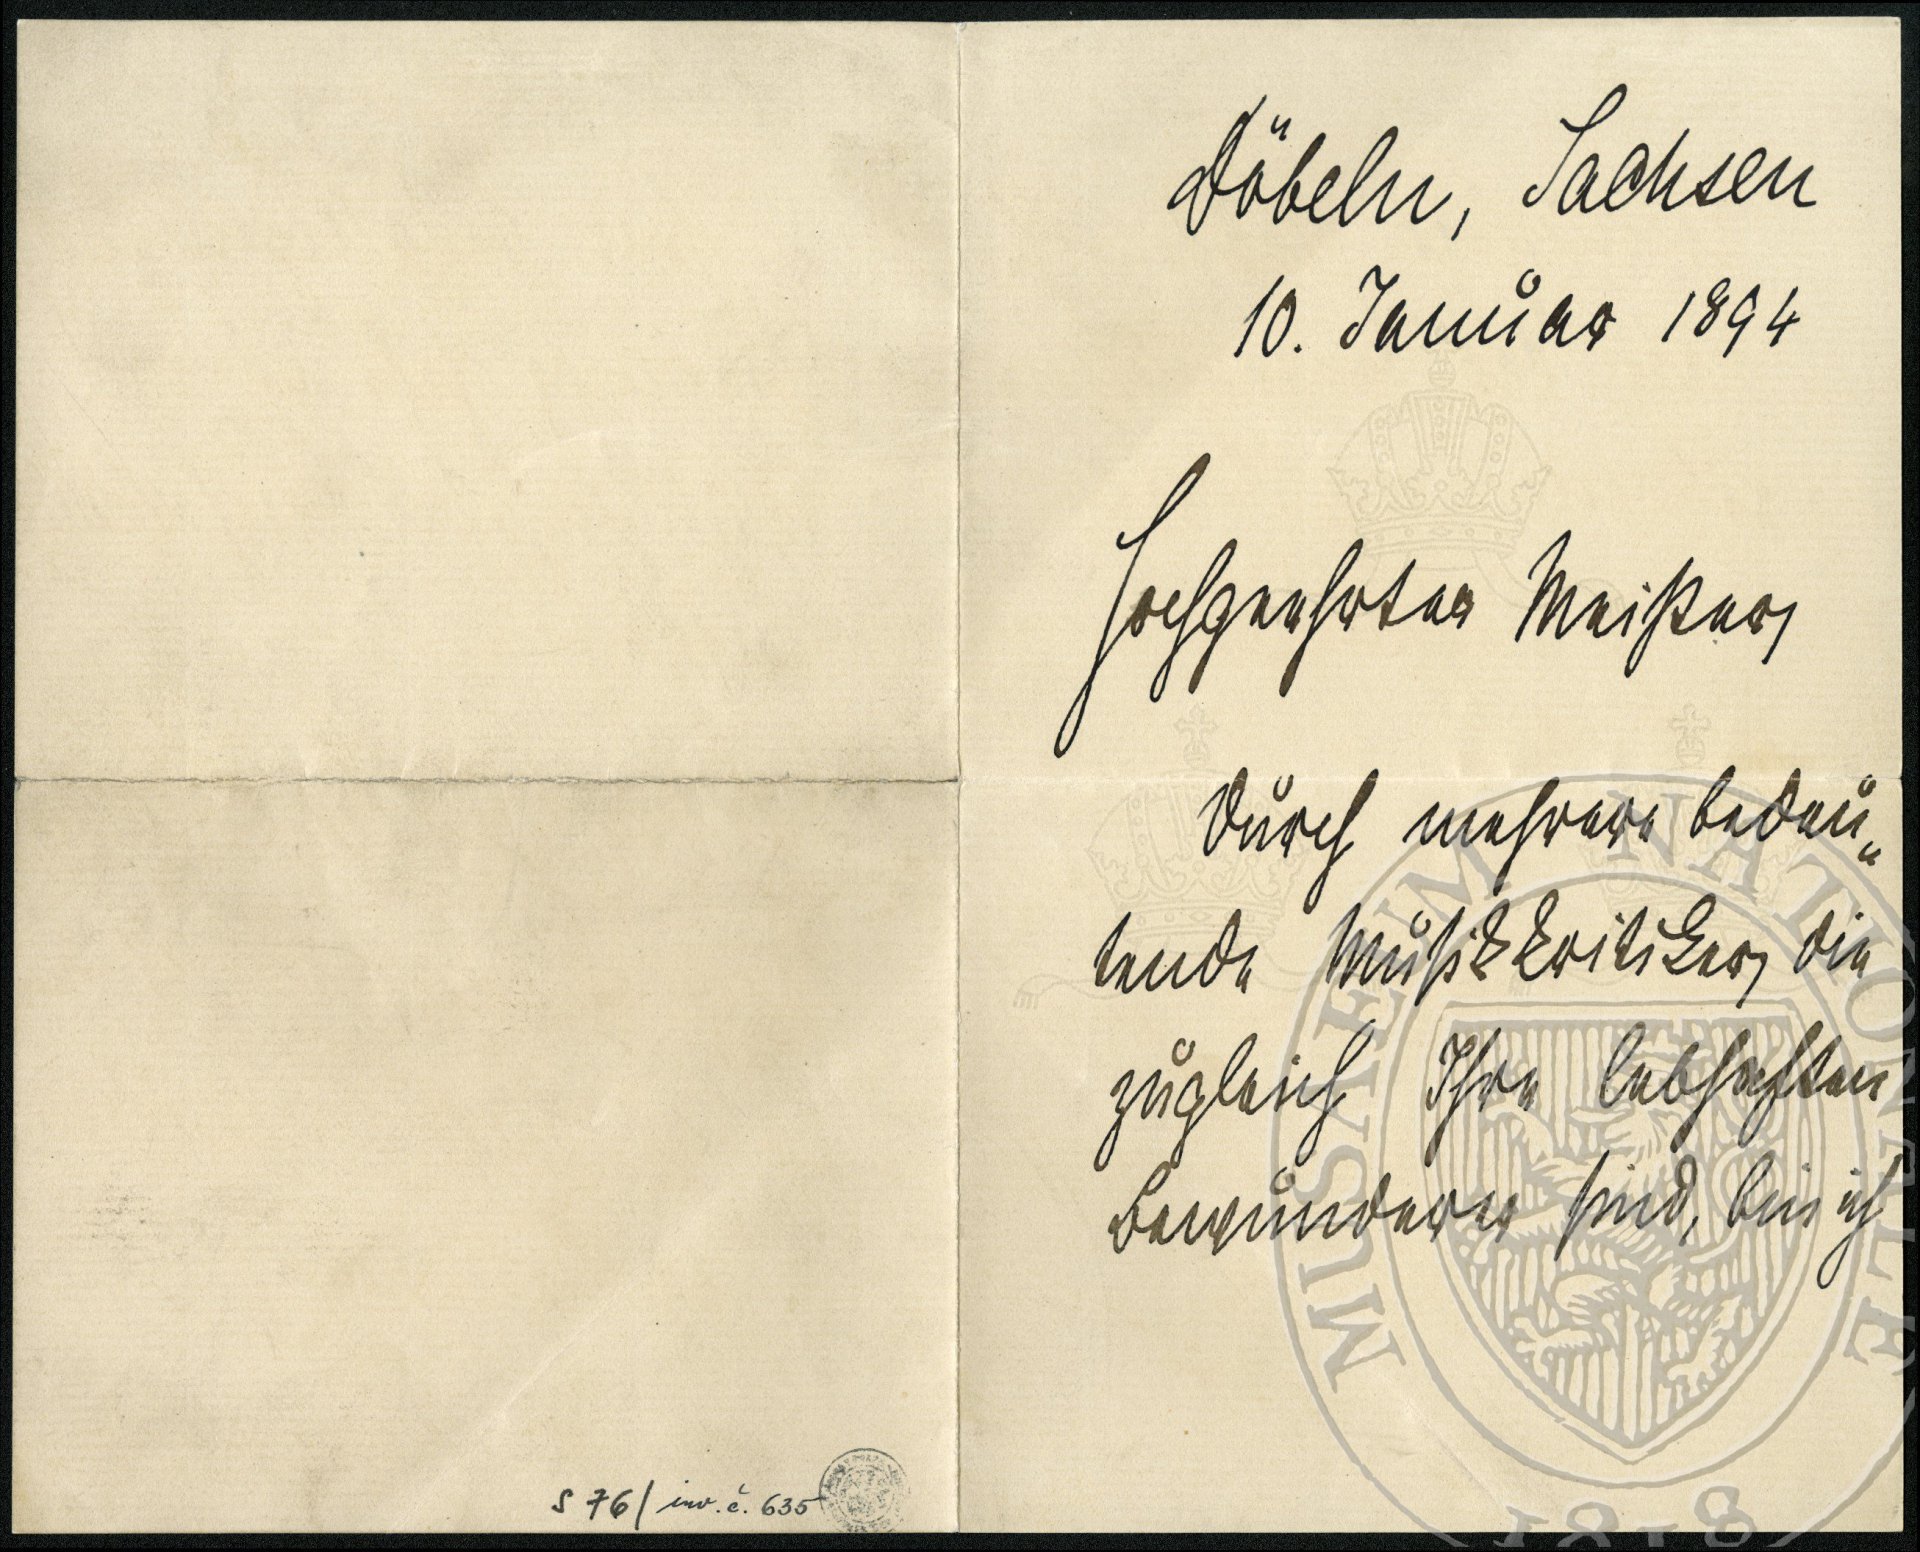 S 76/ inv. č. 635
Döbeln, Sachsen
10. Januar 1894
Hochgeehrter Meister,
durch mehrere bedeu„
tende Musikkritiker, die
zugleich Ihre lebhaften
Bewunderer sind, bin ich
MUSAEUM NATIONALE
1818